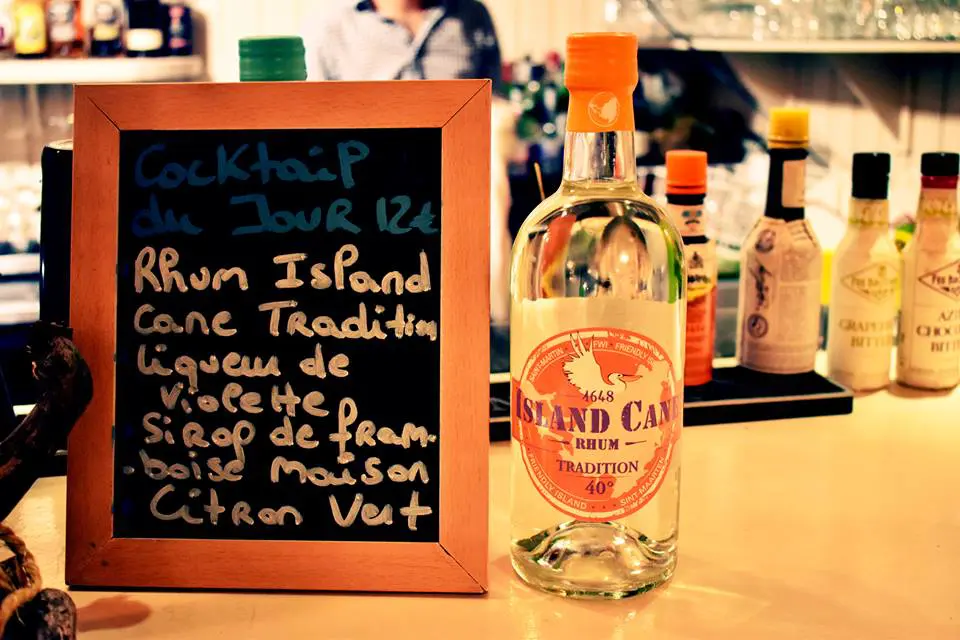 Cocktail
du Jour 12€
Rhum Island
Cane Tradition
liqueur de
violette
Sirop de fram-
boise maison
Citron Vert
SAINT-MARTIN FWI FRIENDLY
1648
ISLAND CANE
RHUM
TRADITION
40°
FRIENDLY ISLAND SINT-MAARTEN
GRAPEFRUIT
BITTERS
CHOCO
BITT